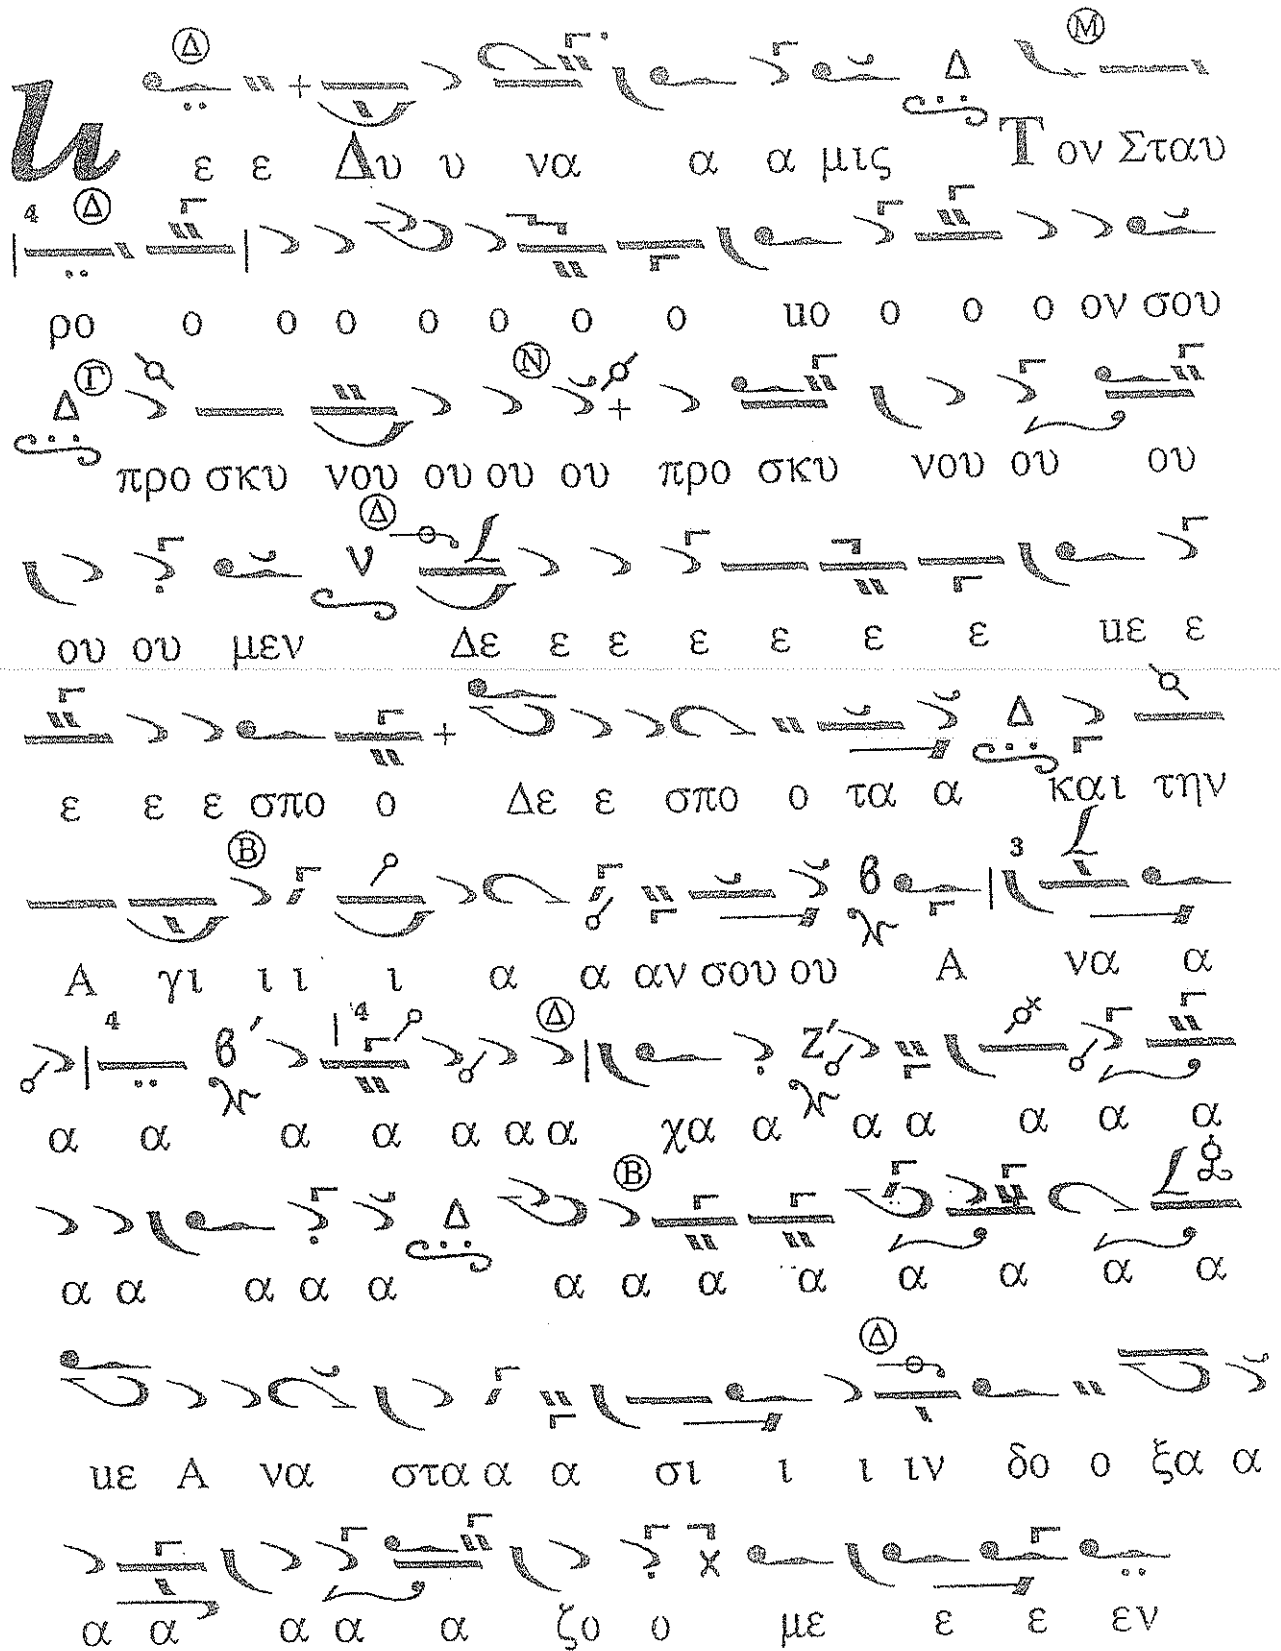 u ε ε Δυ υ να α α μις Τον Σταυ
ρο ο ο ο ο ο ο ο uο ο ο ο ον σου
προ σκυ νου ου ου ου προ σκυ νου ου ου
ου ου μεν Δε ε ε ε ε ε ε uε ε
ε ε ε σπο ο Δε ε σπο ο τα α και την
Α γι ι ι ι α α αν σου ου Α να α
α α α α α α α χα α α α α α α
α α α α α α α α α α α α α
uε Α να στα α α α σι ι ι ιν δο ο ξα α
α α α α α ζο ο με ε ε εν